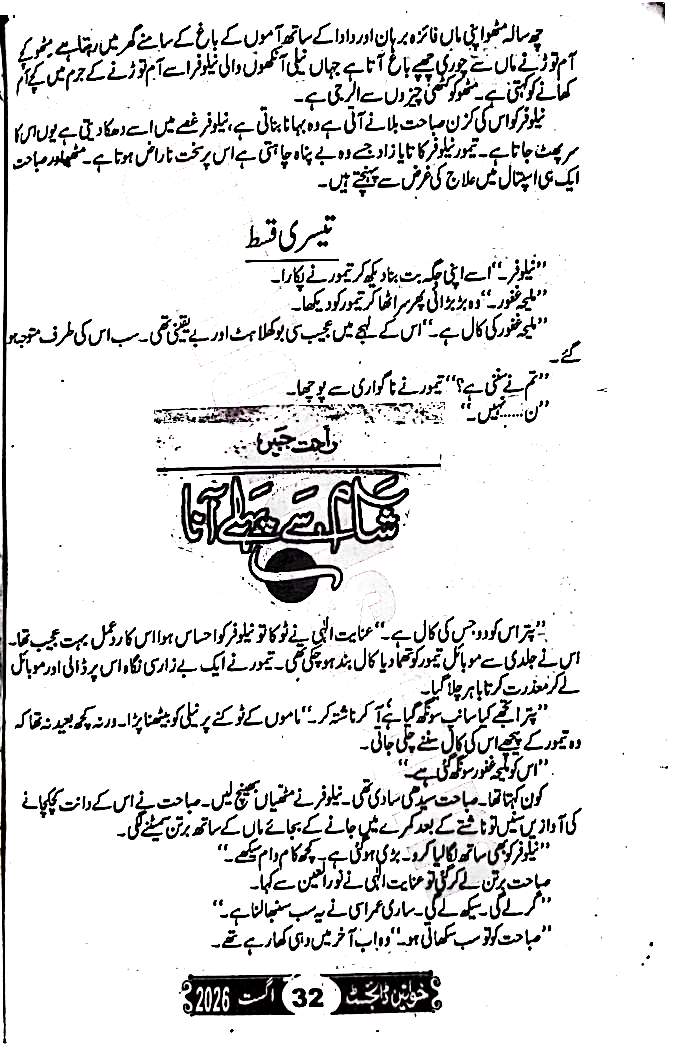 چھ سالہ مٹھو اپنی ماں فائزہ برہان اور دادا کے ساتھ آموں کے باغ کے سامنے گھر میں رہتا ہے مٹھو کے
آم توڑنے ماں سے چوری چھپے باغ آتا ہے جہاں نیلی آنکھوں والی نیلوفر اسے آم توڑنے کے جرم میں کچے آم
کھانے کو کہتی ہے۔ مٹھو کو کھٹی چیزوں سے الرجی ہے۔
نیلوفر کو اس کی کزن صباحت بلانے آتی ہے وہ بہانا بناتی ہے، نیلوفر غصے میں اسے دھکا دیتی ہے یوں اس کا
سر پھٹ جاتا ہے۔ تیمور نیلوفر کا تایا زاد جسے وہ بے پناہ چاہتی ہے اس پر سخت ناراض ہوتا ہے۔ مٹھا اور صباحت
ایک ہی اسپتال میں علاج کی غرض سے پہنچتے ہیں۔
تیسری قسط
”نیلوفر۔“ اسے اپنی جگہ بت بنا دیکھ کر تیمور نے پکارا۔
”ملیحہ غفور۔“ وہ بڑبڑائی پھر سر اٹھا کر تیمور کو دیکھا۔
”ملیحہ غفور کی کال ہے۔“ اس کے لہجے میں عجیب سی بوکھلاہٹ اور بے یقینی تھی۔ سب اس کی طرف متوجہ ہو
گئے۔
”تم نے سننی ہے؟“ تیمور نے ناگواری سے پوچھا۔
”ن......نہیں۔“
راحت جبیں
شام سے پہلے آنا
”پتر اس کو دو جس کی کال ہے۔“ عنایت الٰہی نے ٹوکا تو نیلوفر کو احساس ہوا اس کا ردعمل بہت عجیب تھا۔
اس نے جلدی سے موبائل تیمور کو تھما دیا کال بند ہو چکی تھی۔ تیمور نے ایک بے زاری نگاہ اس پر ڈالی اور موبائل
لے کر معذرت کرتا باہر چلا گیا۔
”پتر! تجھے کیا سانپ سونگھ گیا ہے آ کر ناشتہ کر۔“ ماموں کے ٹوکنے پر نیلی کو بیٹھنا پڑا۔ ورنہ کچھ بعید نہ تھا کہ
وہ تیمور کے پیچھے اس کی کال سننے چلی جاتی۔
”اس کو ملیحہ غفور سونگھ گئی ہے۔“
کون کہتا تھا۔ صباحت سیدھی سادی تھی۔ نیلوفر نے مٹھیاں بھینچ لیں۔ صباحت نے اس کے دانت کچکچانے
کی آوازیں سنیں تو ناشتے کے بعد کمرے میں جانے کے بجائے ماں کے ساتھ برتن سمیٹنے لگی۔
”نیلوفر کو بھی ساتھ لگا لیا کرو۔ بڑی ہو گئی ہے۔ کچھ کام وام سیکھے۔“
صباحت برتن لے کر گئی تو عنایت الٰہی نے نور العین سے کہا۔
”کر لے گی۔ سیکھ لے گی۔ ساری عمر اسی نے یہ سب سنبھالنا ہے۔“
”صباحت کو تو سب سکھاتی ہو۔“ وہ اب آخر میں دہی کھا رہے تھے۔
خواتین ڈائجسٹ 32 اگست 2026